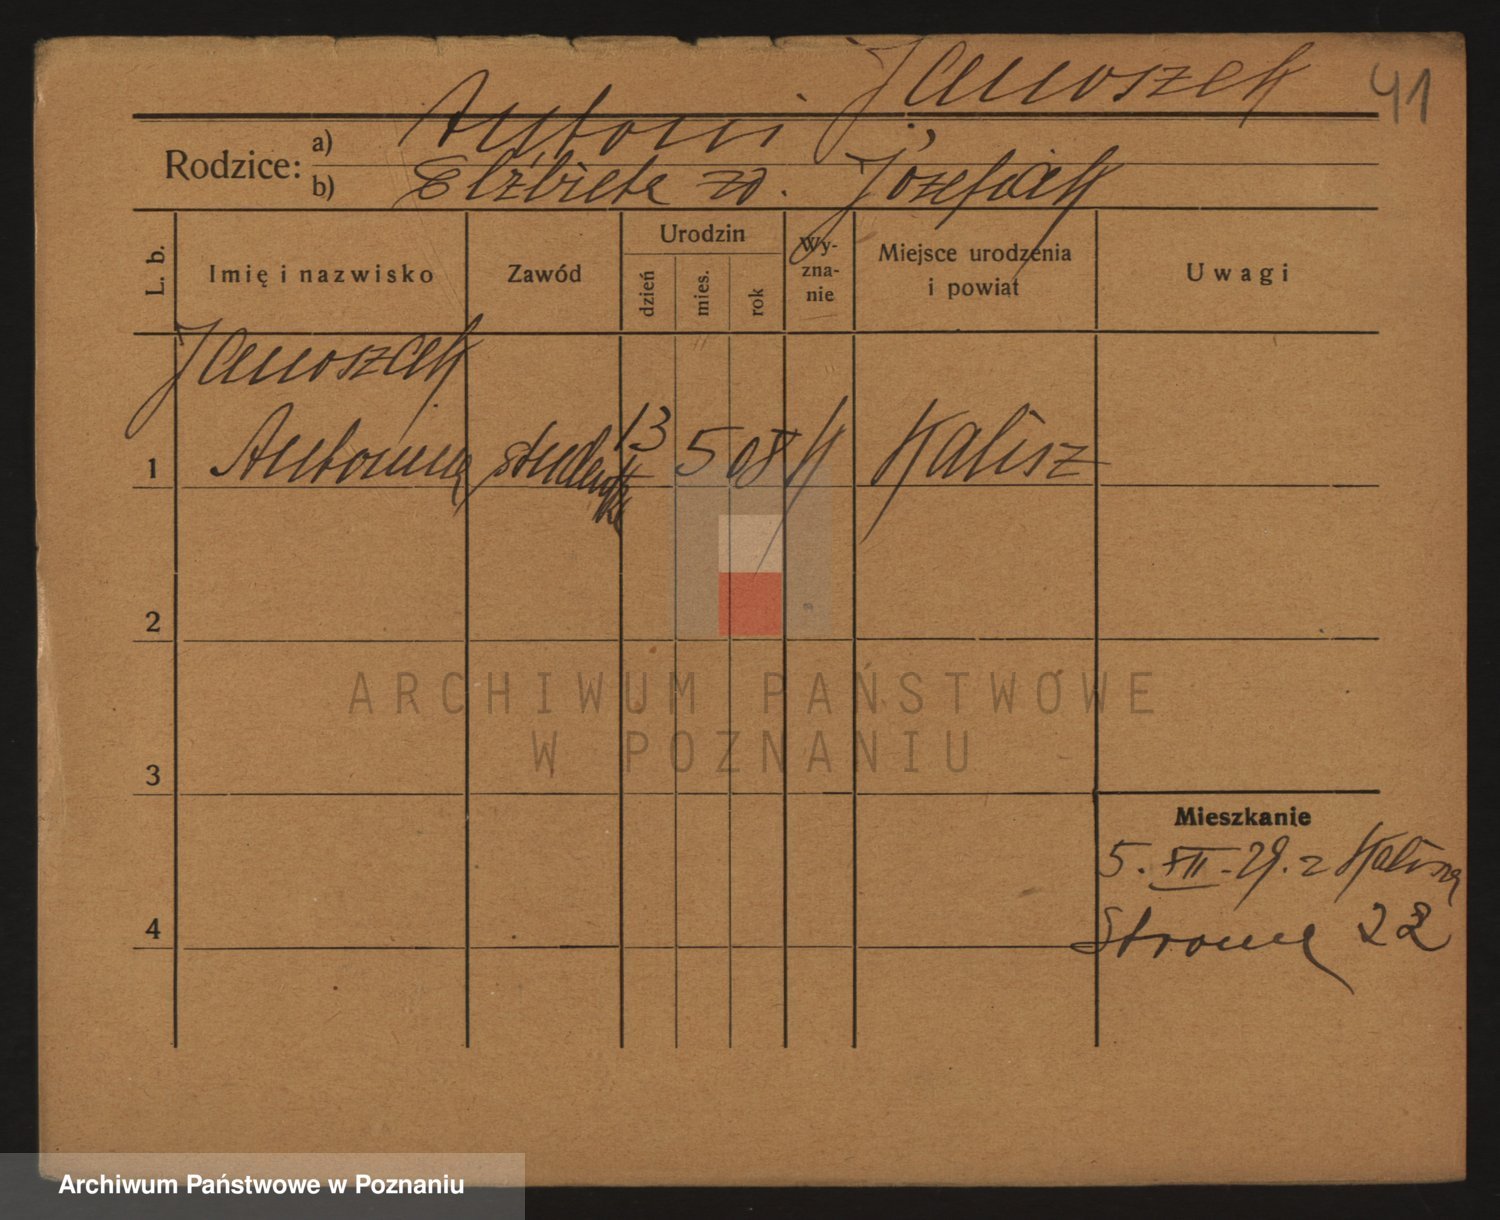 Janoszek 41
Rodzice: a) Antoni
b) Elżbieta zd. Józefiak
L. b. Imię i nazwisko Zawód Urodzin dzień mies. rok Wyzna-nie Miejsce urodzenia i powiat Uwagi
Janoszek
1 Antonina studentka 13 5 08 k Kalisz
2
ARCHIWUM PAŃSTWOWE
W POZNANIU
3
Mieszkanie
5. XII. 29. z Kalisza
4 Stroma 22
Archiwum Państwowe w Poznaniu